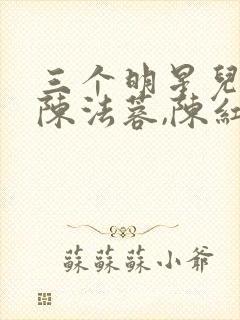 三个明星兒
陳法蓉,陳紅
蘇蘇蘇小爺